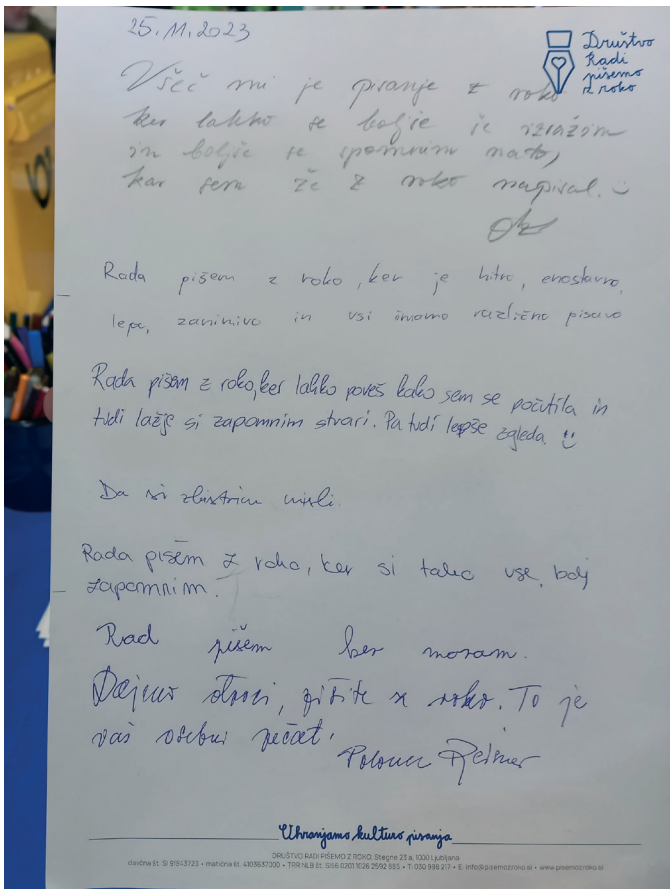 25. 11. 2023
Društvo
Radi
pišemo
z roko
Všeč mi je pisanje z roko
ker lahko se boljše je izražam
in boljše se spomnim nato,
kar sem že z roko napisal. :)
Rada pišem z roko, ker je hitro, enostavno,
lepo, zanimivo in vsi imamo različno pisavo
Rada pišem z roko, ker lahko poveš kako sem se počutila in
tudi lažje si zapomnim stvari. Pa tudi lepše zgleda. :)
Da si zbistrim misli.
Rada pišem z roko, ker si tako vse bolj
zapomnim.
Rad pišem ker moram.
Dajmo otroci, pišite z roko. To je
vaš osebni pečat.
Polonca Reisner
Ohranjamo kulturo pisanja
DRUŠTVO RADI PIŠEMO Z ROKO, Stegne 23 a, 1000 Ljubljana
davčna št. SI 91843723 • matična št. 4103637000 • TRR NLB št. SI56 0201 1026 2592 885 • T: 030 998 217 • E: info@pisemozroko.si • www.pisemozroko.si